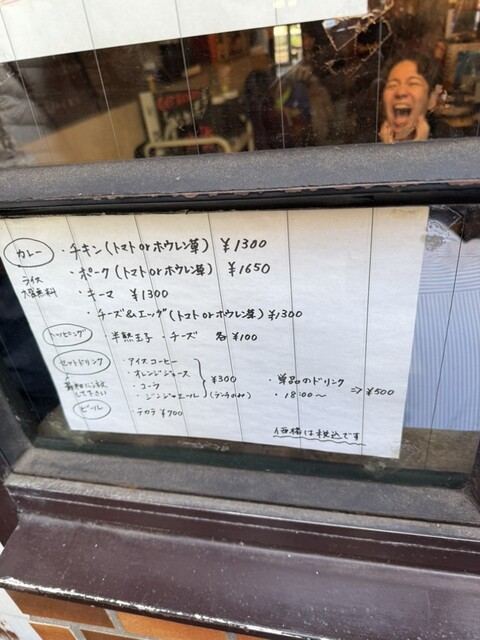 カレー ・チキン(トマト or ホウレン草) ¥1300
ライス大盛無料 ・ポーク(トマト or ホウレン草) ¥1650
・キーマ ¥1300
・チーズ&エッグ(トマト or ホウレン草) ¥1300
トッピング ・半熟玉子 ・チーズ 各¥100
セットドリンク ・アイスコーヒー
・オレンジジュース
・コーラ ¥300
・ジンジャーエール (ランチのみ)
・単品のドリンク
・18:00〜 ⇒ ¥500
ビール ・テカテ ¥700
価格は税込です